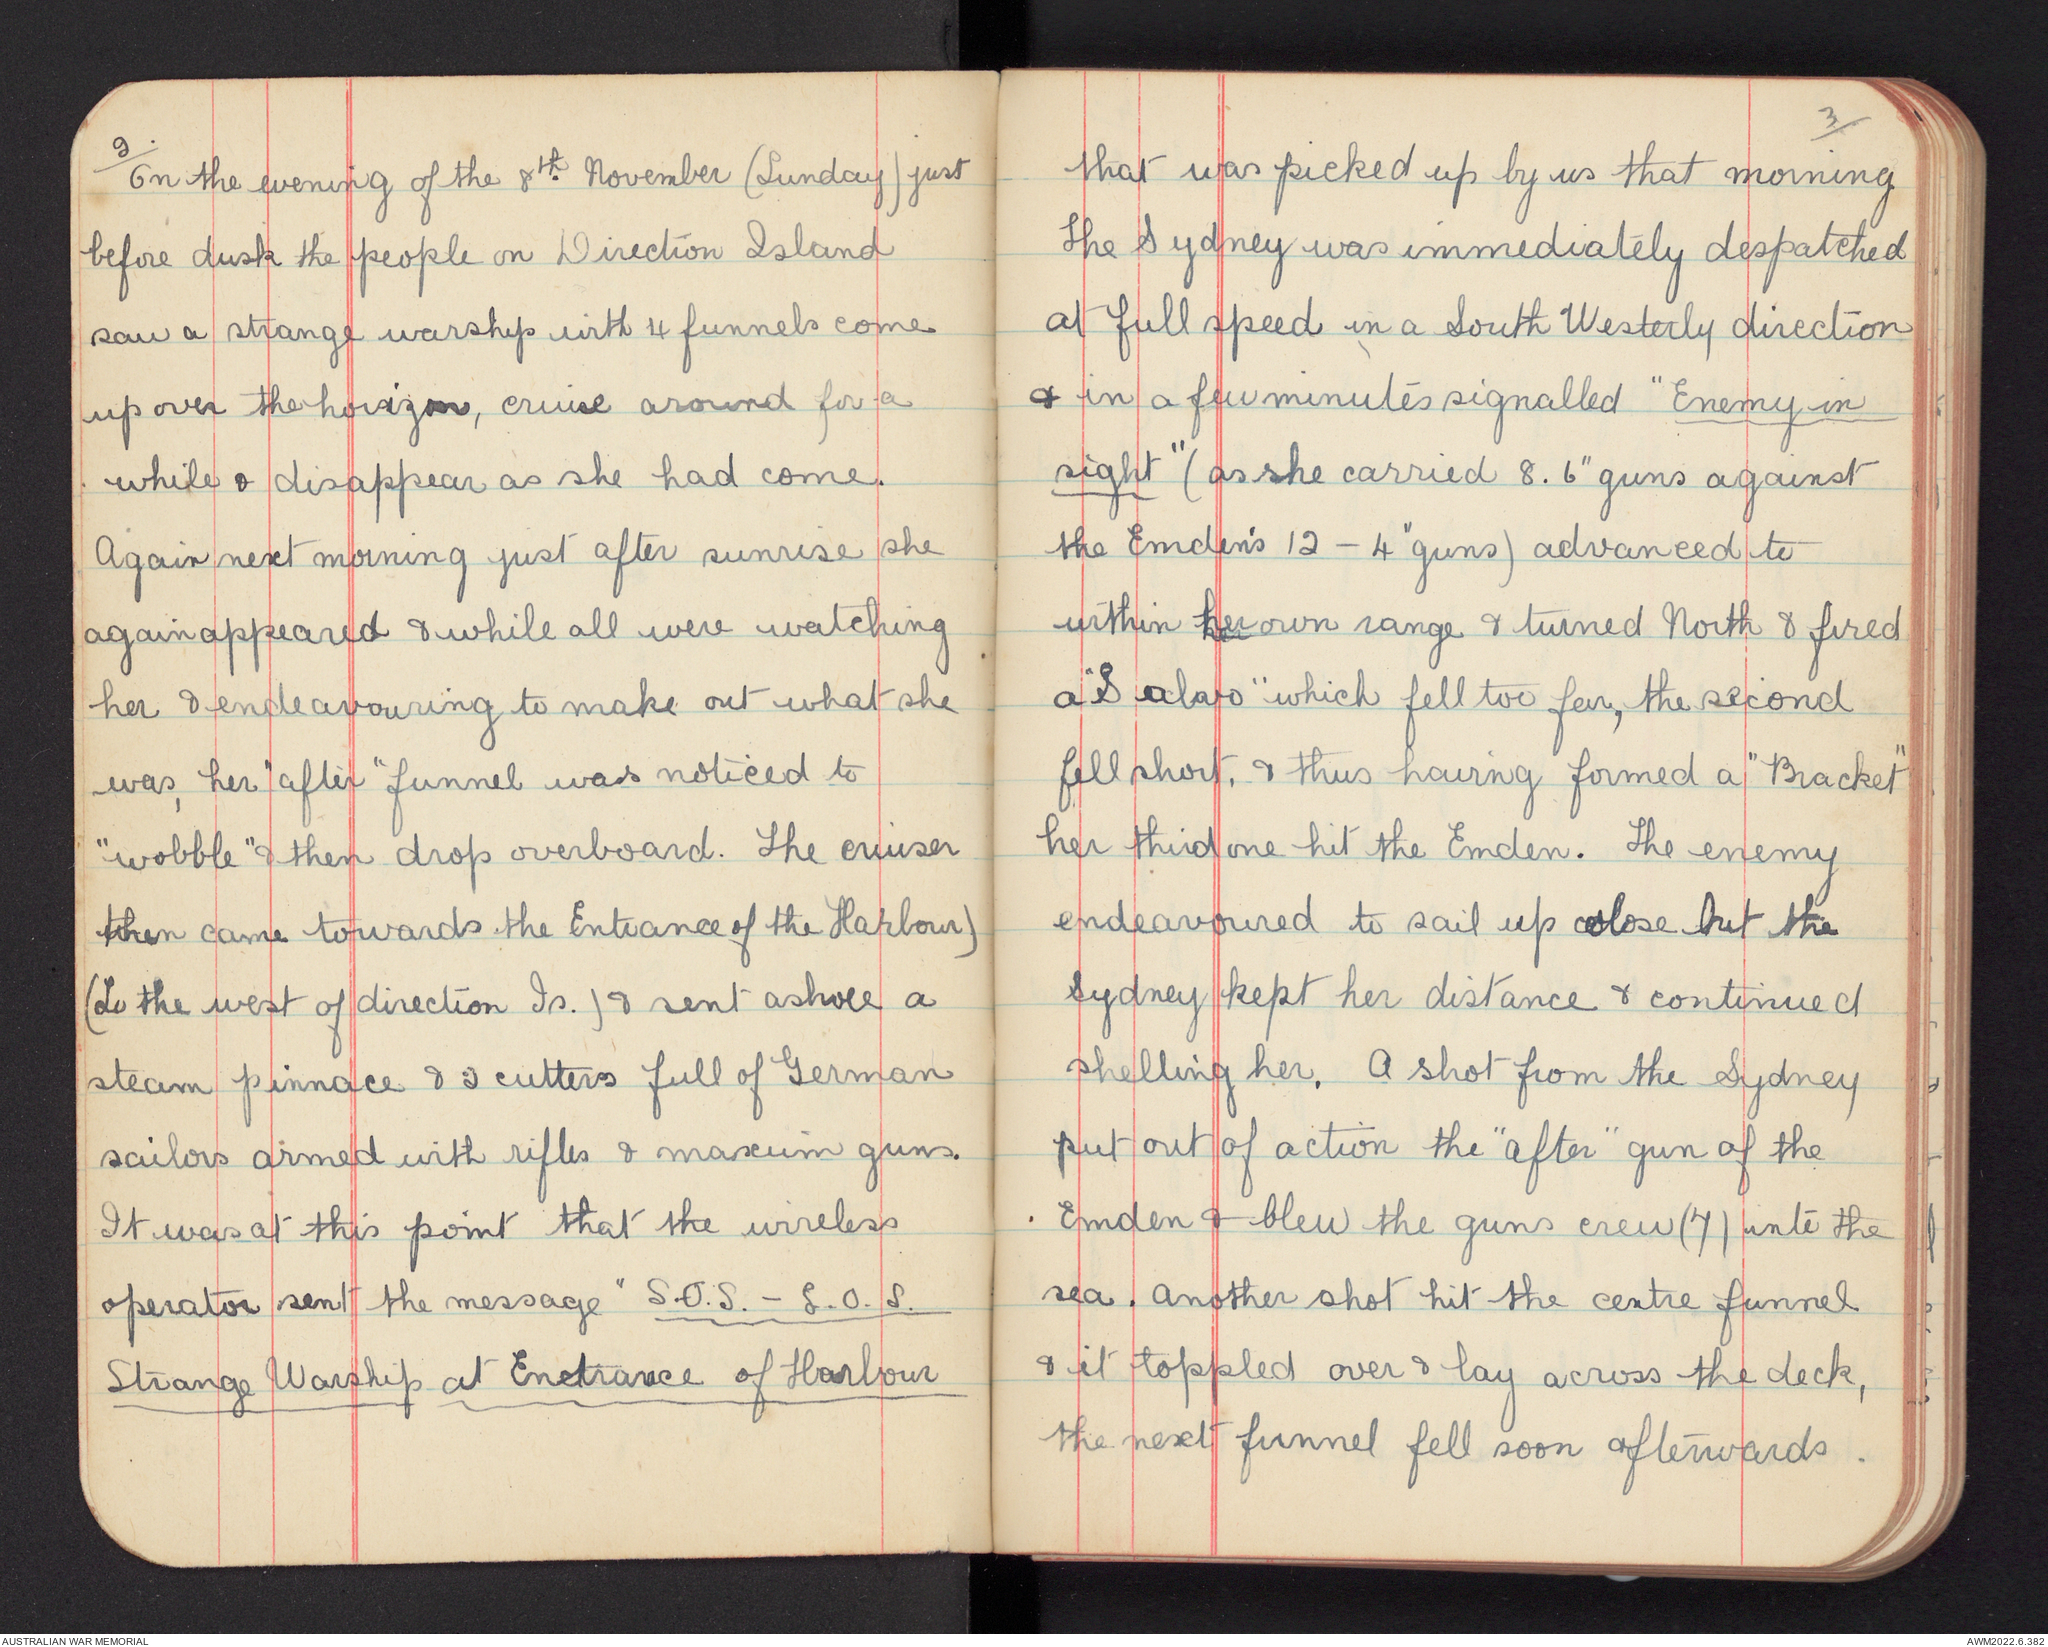 2.
On the evening of the 8th. November (Sunday) just
before dusk the people on Direction Island
saw a strange warship with 4 funnels come
up over the horizon, cruise around for a
while & disappear as she had come.
Again next morning just after sunrise she
again appeared & while all were watching
her & endeavouring to make out what she
was, her "after" funnel was noticed to
"wobble" & then drop overboard. The cruiser
then came towards the Entrance of the Harbour)
(To the west of direction Is.) & sent ashore a
steam pinnace & 2 cutters full of German
sailors armed with rifles & maxim guns.
It was at this point that the wireless
operator sent the message " S.O.S. - S.O.S.
Strange Warship at Entrance of Harbour
3
that was picked up by us that morning
The Sydney was immediately despatched
at full speed in a South Westerly direction
& in a few minutes signalled "Enemy in
sight" (as she carried 8. 6" guns against
the Emden's 12 - 4" guns) advanced to
within her own range & turned North & fired
a "Salvo" which fell too far, the second
fell short, & thus having formed a "Bracket"
her third one hit the Emden. The enemy
endeavoured to sail up close but the
Sydney kept her distance & continued
shelling her. A shot from the Sydney
put out of action the "after" gun of the
Emden & blew the guns crew (7) into the
sea. Another shot hit the centre funnel
& it toppled over & lay across the deck,
the next funnel fell soon afterwards.
AUSTRALIAN WAR MEMORIAL
AWM2022.6.382